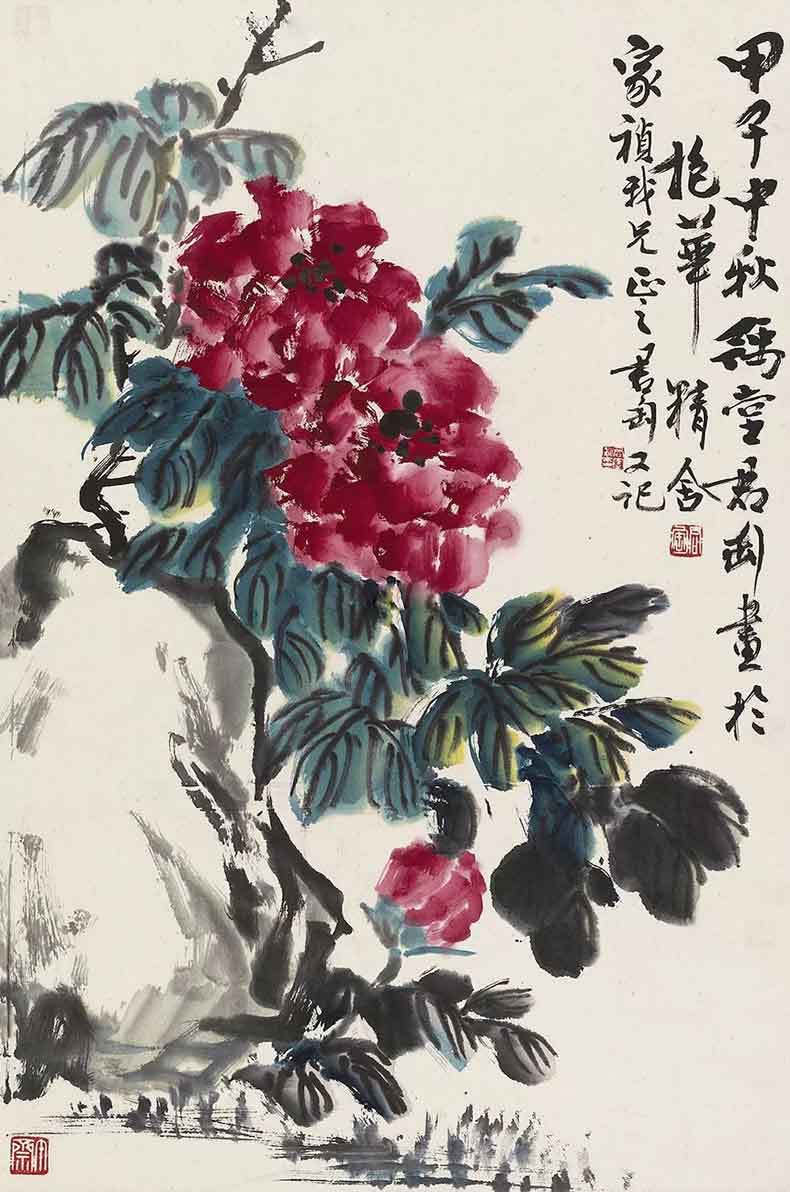 甲子中秋豫堂君匋畫於
抱華精舍
家禎我兄正之君匋又記